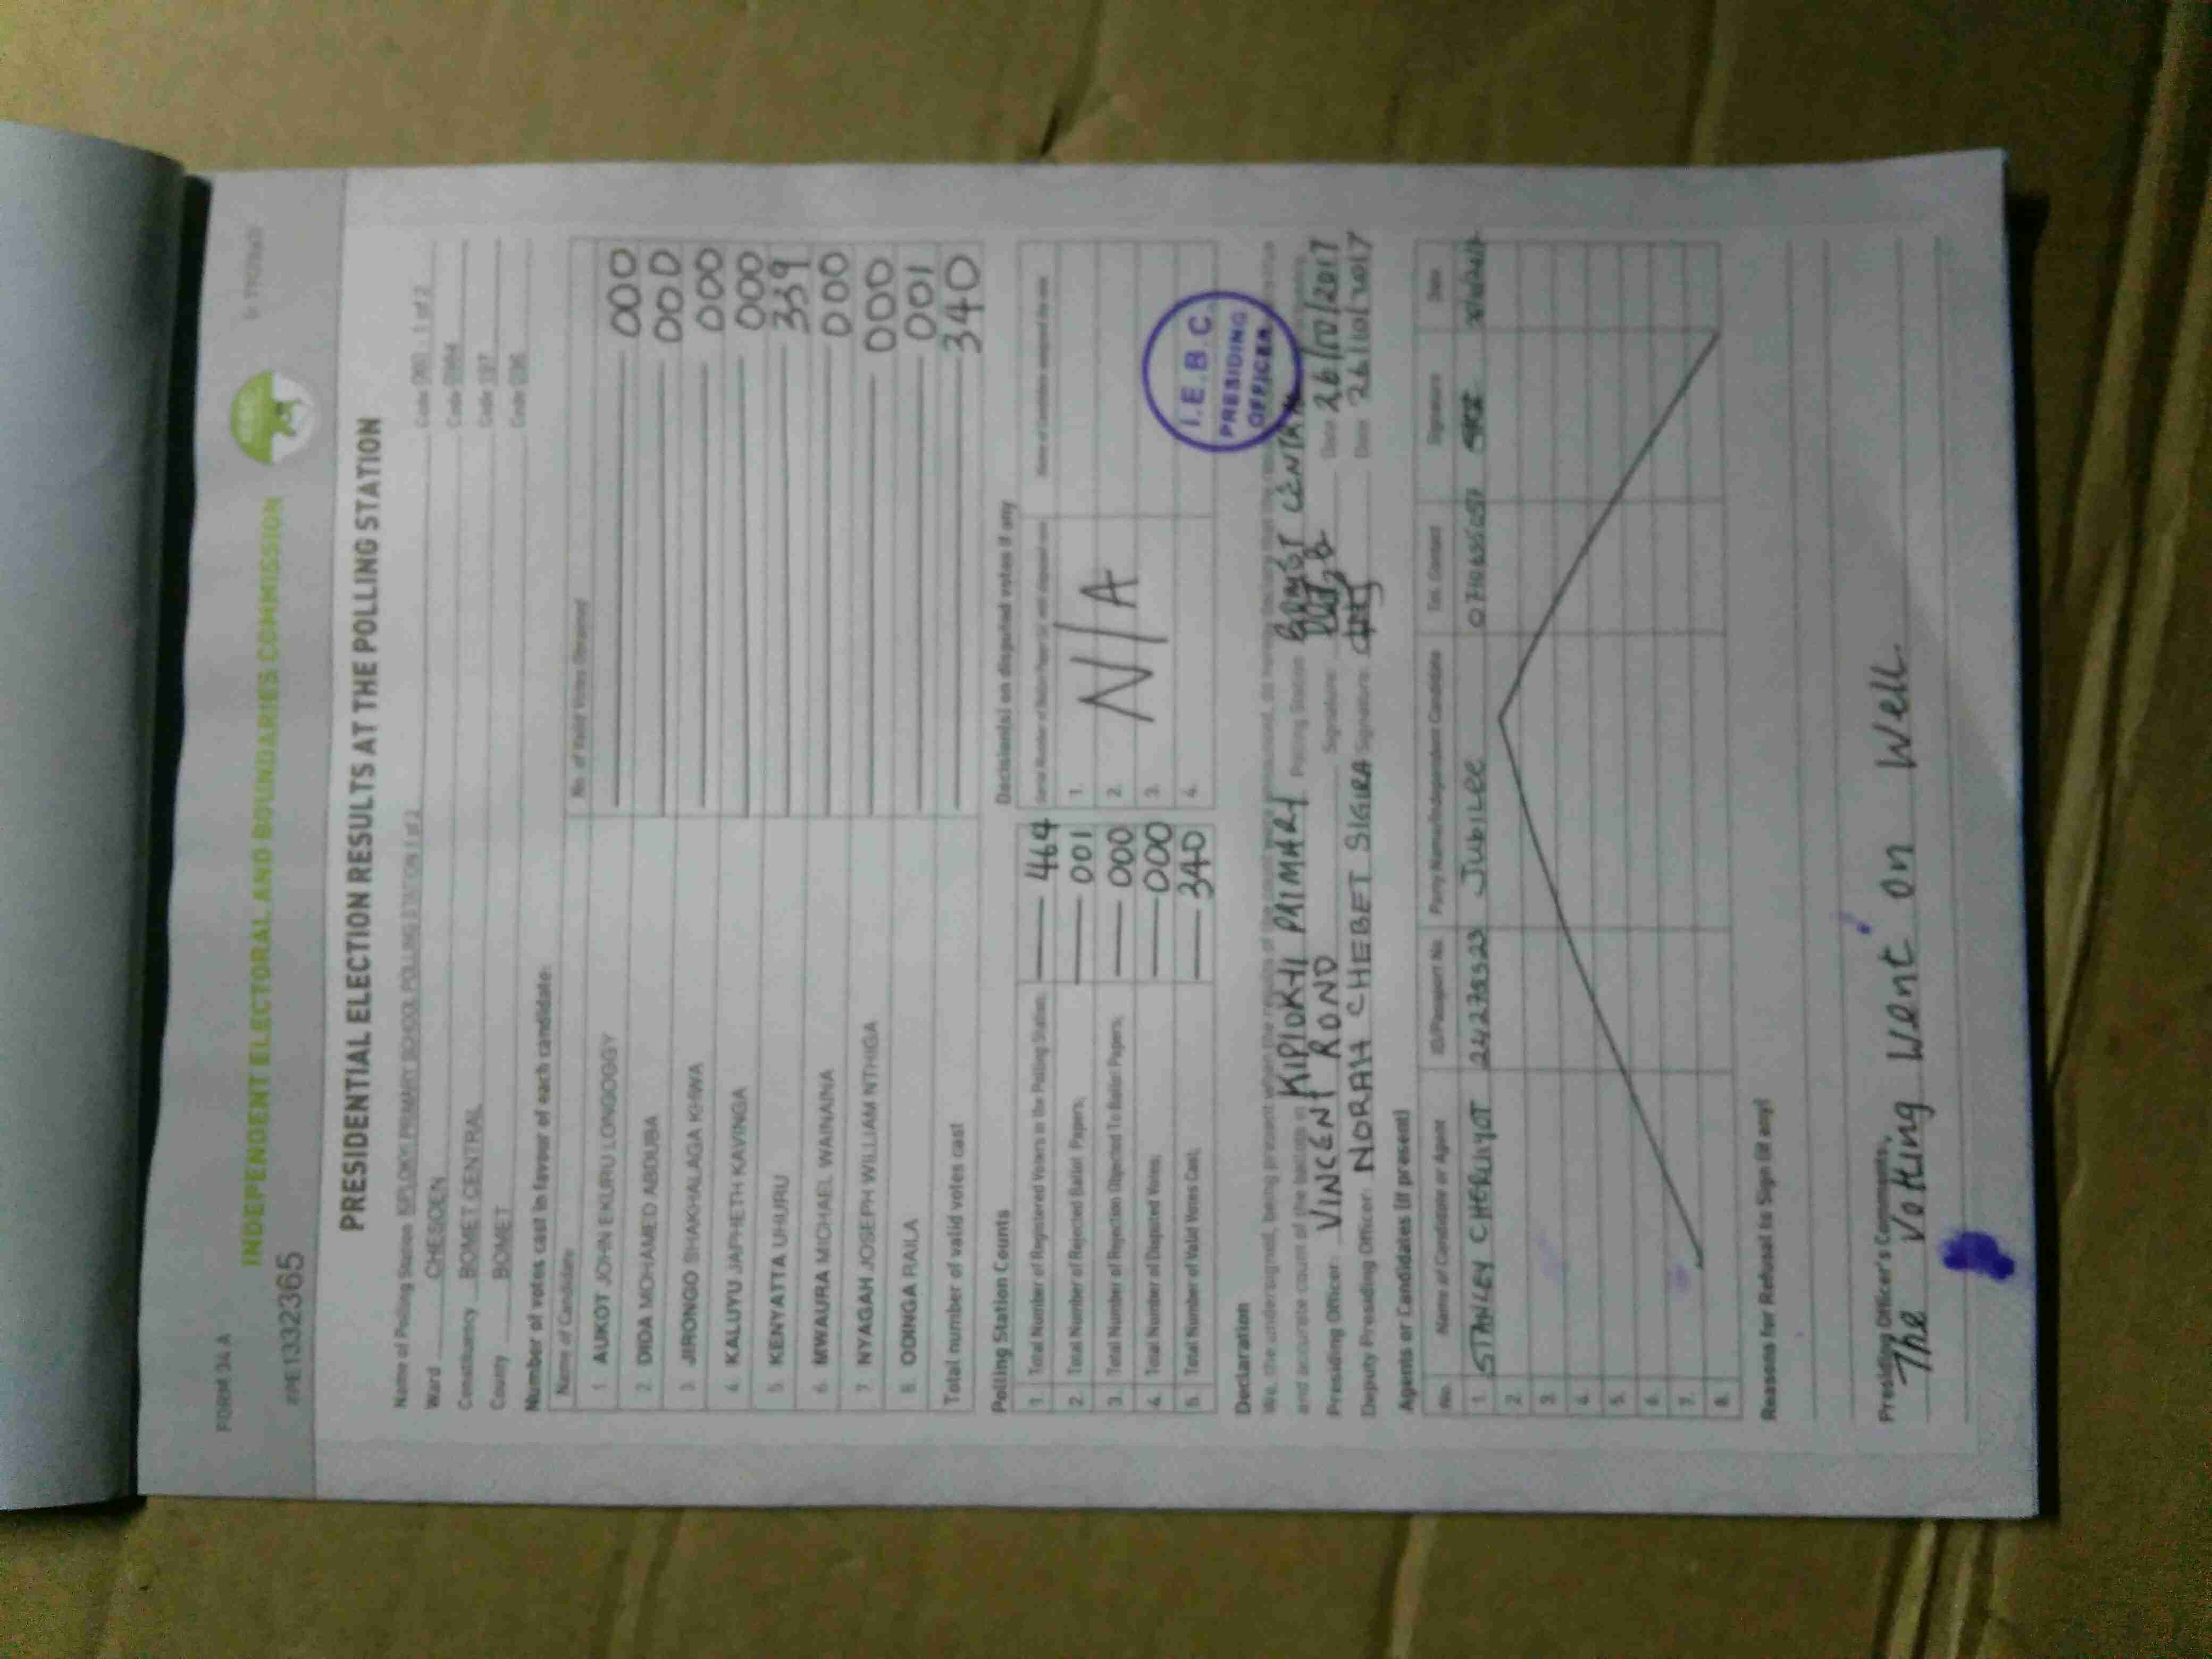 FORM 34 A
INDEPENDENT ELECTORAL AND BOUNDARIES COMMISSION
IEBC
#PE1332365
PRESIDENTIAL ELECTION RESULTS AT THE POLLING STATION
Name of Polling Station PRIMARY SCHOOL POLLING STATION 1 of 2 Code 1 of 2
Ward Code
Constituency BOMET CENTRAL Code
County BOMET Code
Number of votes cast in favour of each candidate:
Name of Candidate No. of Valid Votes Obtained
1. AUKOT JOHN EKURU LONGOGGY 000
2. DIDA MOHAMED ABDUBA 000
3. JIRONGO SHAKHALAGA KHWA 000
4. KALUYU JAPHETH KAVINGA 000
5. KENYATTA UHURU 339
6. MWAURA MICHAEL WAINAINA 000
7. NYAGAH JOSEPH WILLIAM NTHIGA 000
8. ODINGA RAILA 001
Total number of valid votes cast 340
Polling Station Counts
1. Total Number of Registered Voters in the Polling Station; 464
2. Total Number of Rejected Ballot Papers; 001
3. Total Number of Rejection Objected To Ballot Papers; 000
4. Total Number of Disputed Votes; 000
5. Total Number of Valid Votes Cast; 340
Decision(s) on disputed votes if any
1.
2. N/A
3.
4.
I.E.B.C.
PRESIDING
OFFICER
Declaration
We, the undersigned, being present when the results of the count were
and accurate count of the ballots in PRIMARY Polling Station BOMET CENTRAL
Presiding Officer: VINCENT RONO Signature: Date 26/10/2017
Deputy Presiding Officer: NORAH CHEBET SIGIRA Signature: Date 26/10/2017
Agents or Candidates (if present)
No. Name of Candidate or Agent ID/Passport No. Party Name/Independent Candidate Tel. Contact Signature Date
1. STANLEY CHERUIYOT JUBILEE
2.
3.
4.
5.
6.
7.
8.
Reasons for Refusal to Sign (if any)
Presiding Officer's Comments.
The Votting Went on Well.